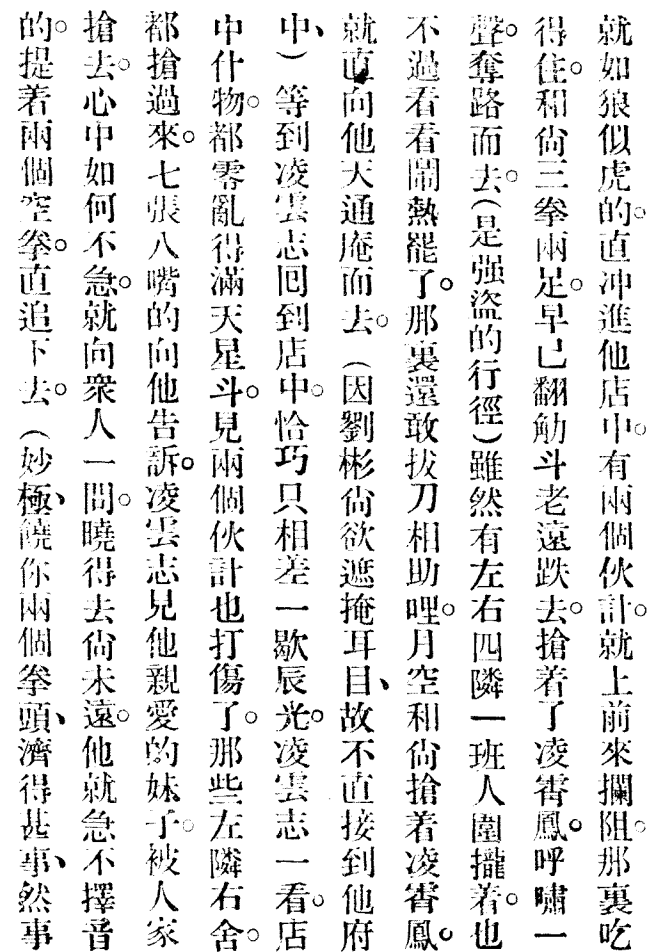 就如狼似虎的。直冲進他店中。有兩個伙計。就上前來攔阻。那裏吃
得住。和尙三拳兩足。早已翻觔斗老遠跌去。搶着了凌霄鳳。呼嘯一
聲。奪路而去。(是强盜的行徑)雖然有左右四隣一班人圍攏着。也
不過看看鬧熱罷了。那裏還敢拔刀相助哩。月空和尙搶着凌霄鳳。
就直向他天通庵而去。(因劉彬尙欲遮掩耳目、故不直接到他府
中、)等到凌雲志回到店中。恰巧只相差一歇辰光。凌雲志一看。店
中什物。都零亂得滿天星斗。見兩個伙計也打傷了。那些左隣右舍。
都搶過來。七張八嘴的向他告訴。凌雲志見他親愛的妹子。被人家
搶去。心中如何不急。就向衆人一問。曉得去尙未遠。他就急不擇音
的。提着兩個空拳。直追下去。(妙極、饒你兩個拳頭、濟得甚事、然事